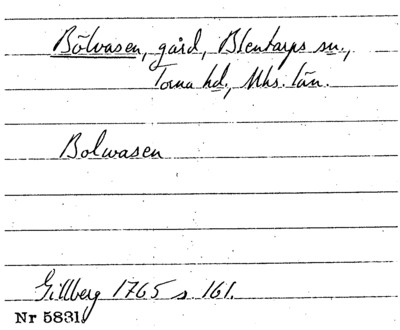 Bölvasen, gård, Blentarps sn.,
Torna hd., Mhs. län.
Bolwasen
Gillberg 1765 s. 161.
Nr 5831